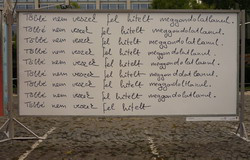 Többé nem veszek fel hitelt meggondolatlanul.
Többé nem veszek fel hitelt meggondolatlanul.
Többé nem veszek fel hitelt meggondolatlanul.
Többé nem veszek fel hitelt meggondolatlanul.
Többé nem veszek fel hitelt meggondolatlanul.
Többé nem veszek fel hitelt meggondolatlanul.
Többé nem veszek fel hitelt meggondolatlanul.
Többé nem veszek fel hitelt